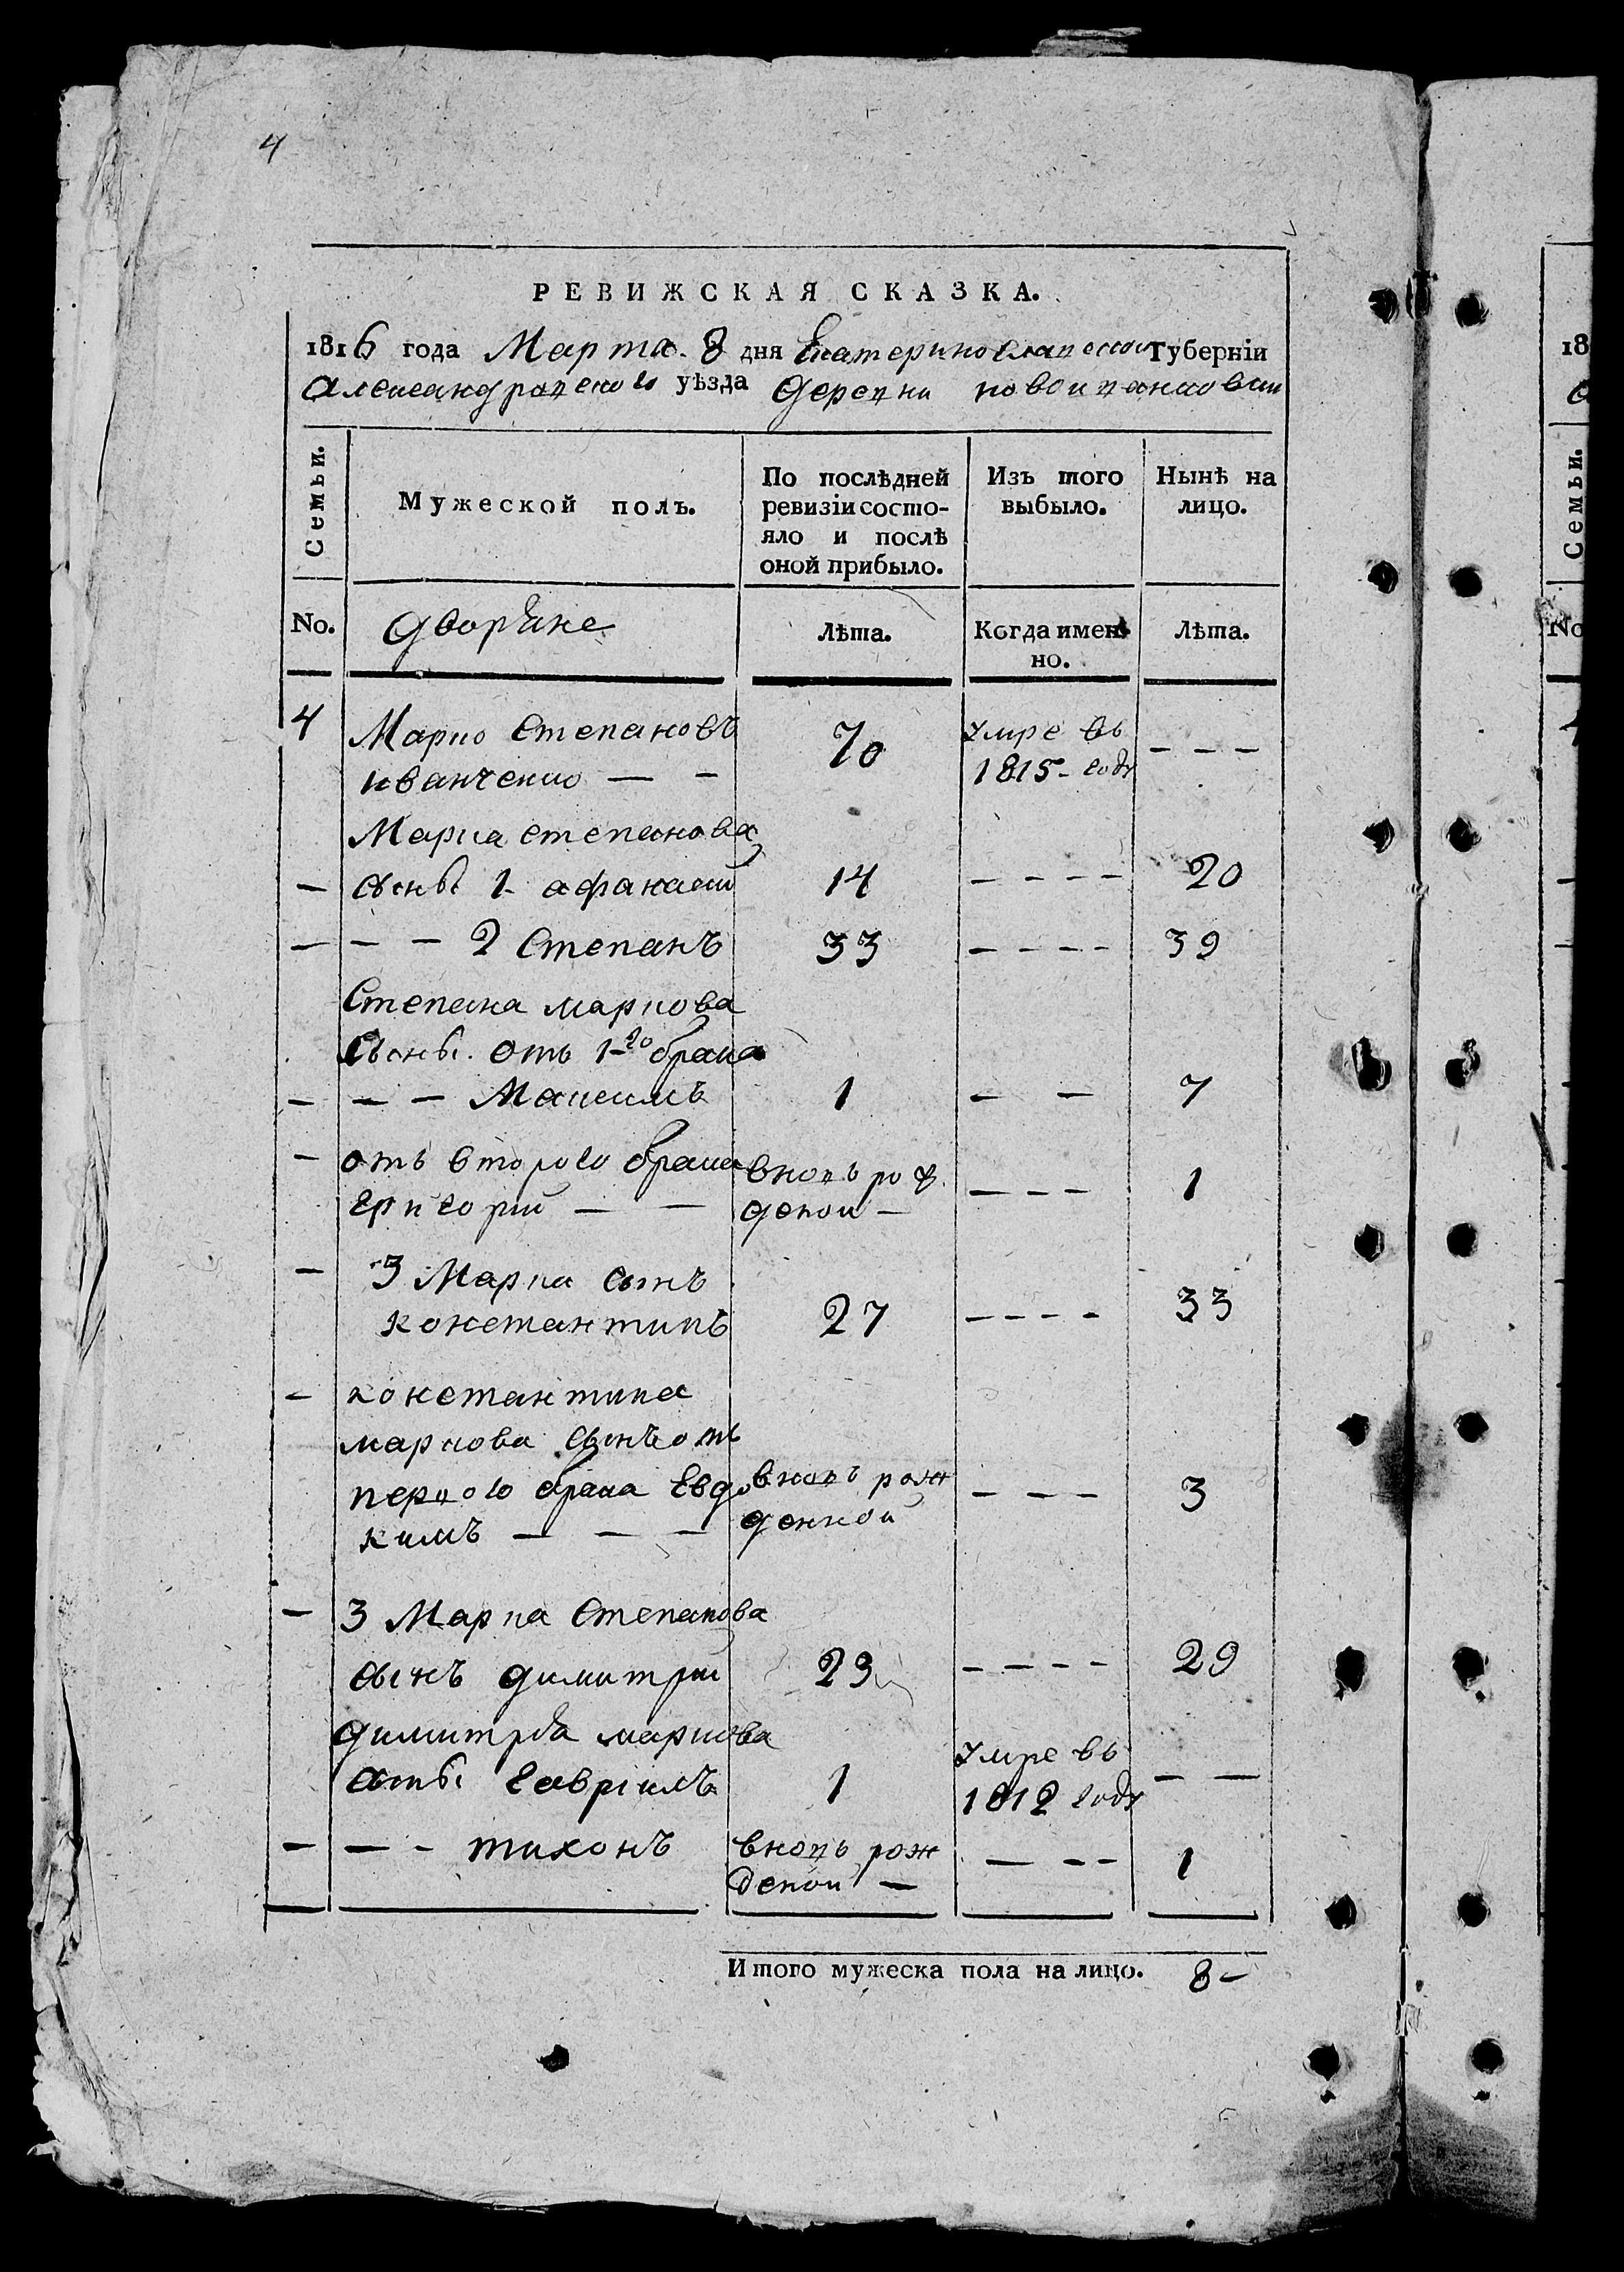 4
РЕВИЖСКАЯ СКАЗКА.
1816 года Марта 8 дня Екатеринославской Губерніи
Александровского уѣзда Деревни новоивановки
Семьи.
Мужеской полъ.
По послѣдней
ревизіи состо-
яло и послѣ
оной прибыло.
Изъ того
выбыло.
Нынѣ на
лицо.
No.
дворяне
Лѣта.
Когда имен-
но.
Лѣта.
4 Марко Степановъ 70 умре въ - - -
иванченко — - 1815 году
Марка степанова
— сыны 1 афанасий 14 - - - - 20
— - - 2 Степанъ 33 - - - - 39
Степана маркова
сыны отъ 1го брака
— - - Максимъ 1 - - 7
— отъ второго брака вновь рож - - - 1
григорий — — деной —
— 3 Марка сынъ
константинъ 27 - - - - 33
— константина
маркова сынъ отъ
первого брака Евдо вновь рож - - - 3
кимъ — — — денной
— 3 Марка Степанова
сынъ димитрий 23 - - - - 29
димитрѣа маркова
сыны гавріилъ 1 умре въ — —
1812 году
— - - тихонъ вновь рож — - - 1
деной —
Итого мужеска пола на лицо. 8 -
18
Семьи.
No